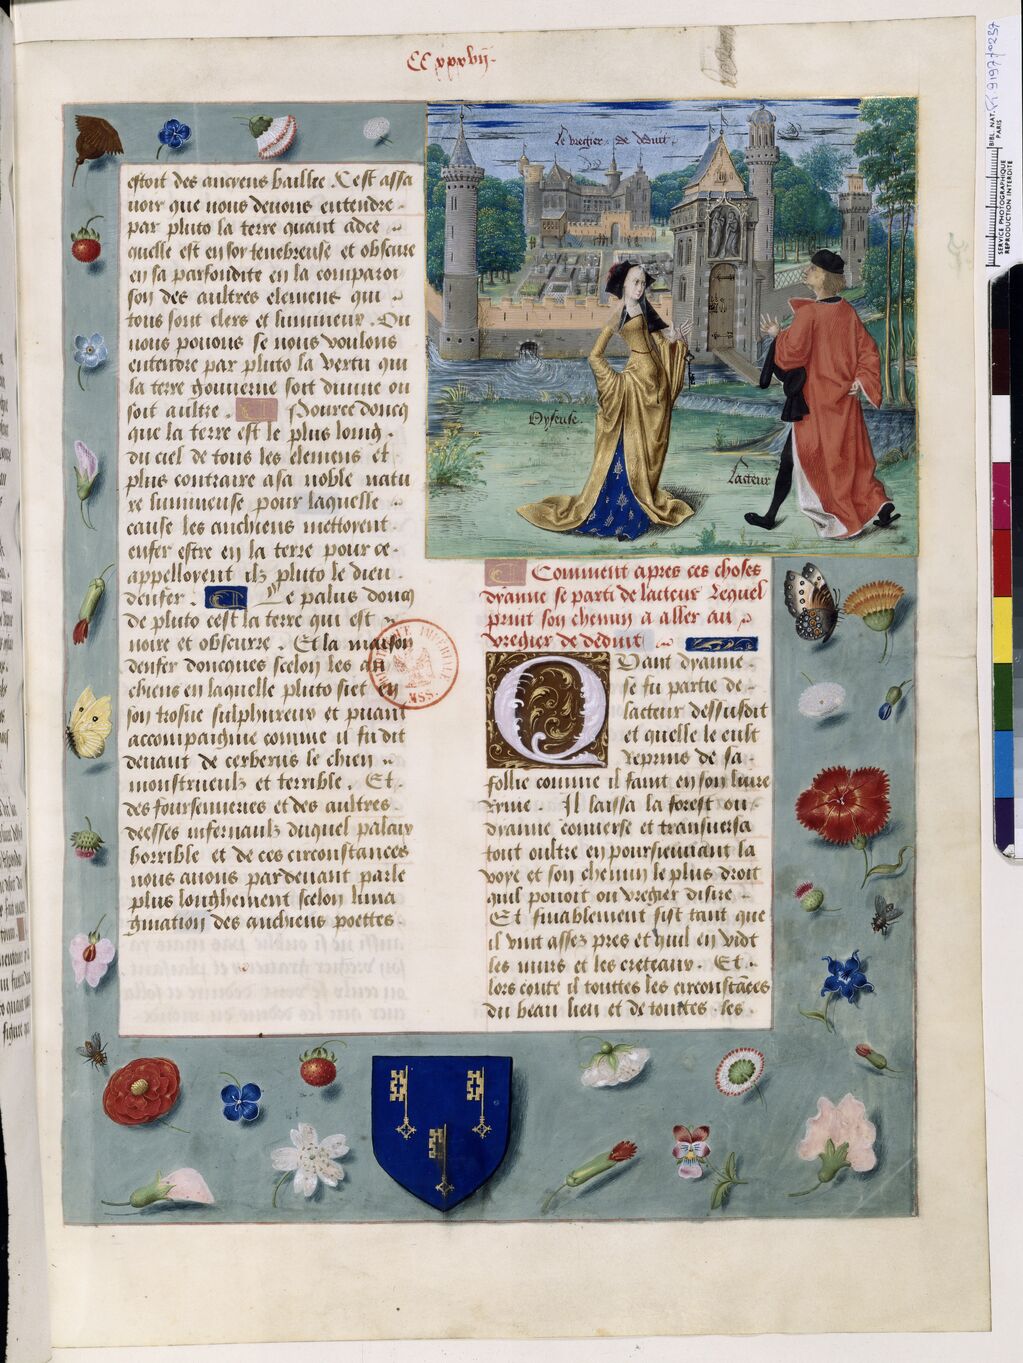 CC xxxvij.
le vregier de deduit
Oyseuse.
Lacteur
estoit des ancyens baillee. Cest assa
uoir que nous deuons entendre
par pluto la terre quant adce
quelle est en sor tenebreuse et obscure
en sa parfondite en la compara
son des aultres elemens qui
tous sont clers et lumineux. Ou
nous pouons se nous voulons
entendre par pluto la vertu qui
la terre gouuerne soit diuine ou
soit aultre. Pource doncq
que la terre est le plus loing
du ciel de tous les elemens et
plus contraire a sa noble natu
re lumineuse pour laquelle
cause les anchiens mettoient
enfer estre en la terre pour ce
appelloient ilz pluto le dieu
denfer. Le palus doncq
de pluto cest la terre qui est
noire et obscure. Et la maison
denfer doncques scelon les an
chiens en laquelle pluto siet en
son trosne sulphureux et puant
accompaignie comme il fu dit
deuant de cerberus le chien
monstrueulx et terrible. Et
des foursenneries et des aultres
deesses infernaulx duquel palaix
horrible et de ces circonstances
nous auons pardeuant parle
plus longhement scelon lima
gination des anchiens poettes.
Comment apres ces choses
dyanne se parti de lacteur Lequel
print son chemin a aller au
vregier de deduit
Quant dyanne
se fu partie de
lacteur dessusdit
et quelle le eult
reprins de sa
follie comme il faint en son liure
Ryme. Il laissa la forest ou
dyanne conuerse et transuersa
tout oultre en poursieuuant la
voye et son chemin le plus droit
quil pouoit ou vregier disire.
Et finablement fist tant que
il vint assez pres et quil en vidt
les murs et les creteaux. Et
lors conte il touttes les circonstãces
du beau lieu et de touttes les
MSS.
Fr. 9197 fº 237
BIBL. NAT.
PARIS
SERVICE PHOTOGRAPHIQUE
REPRODUCTION INTERDITE